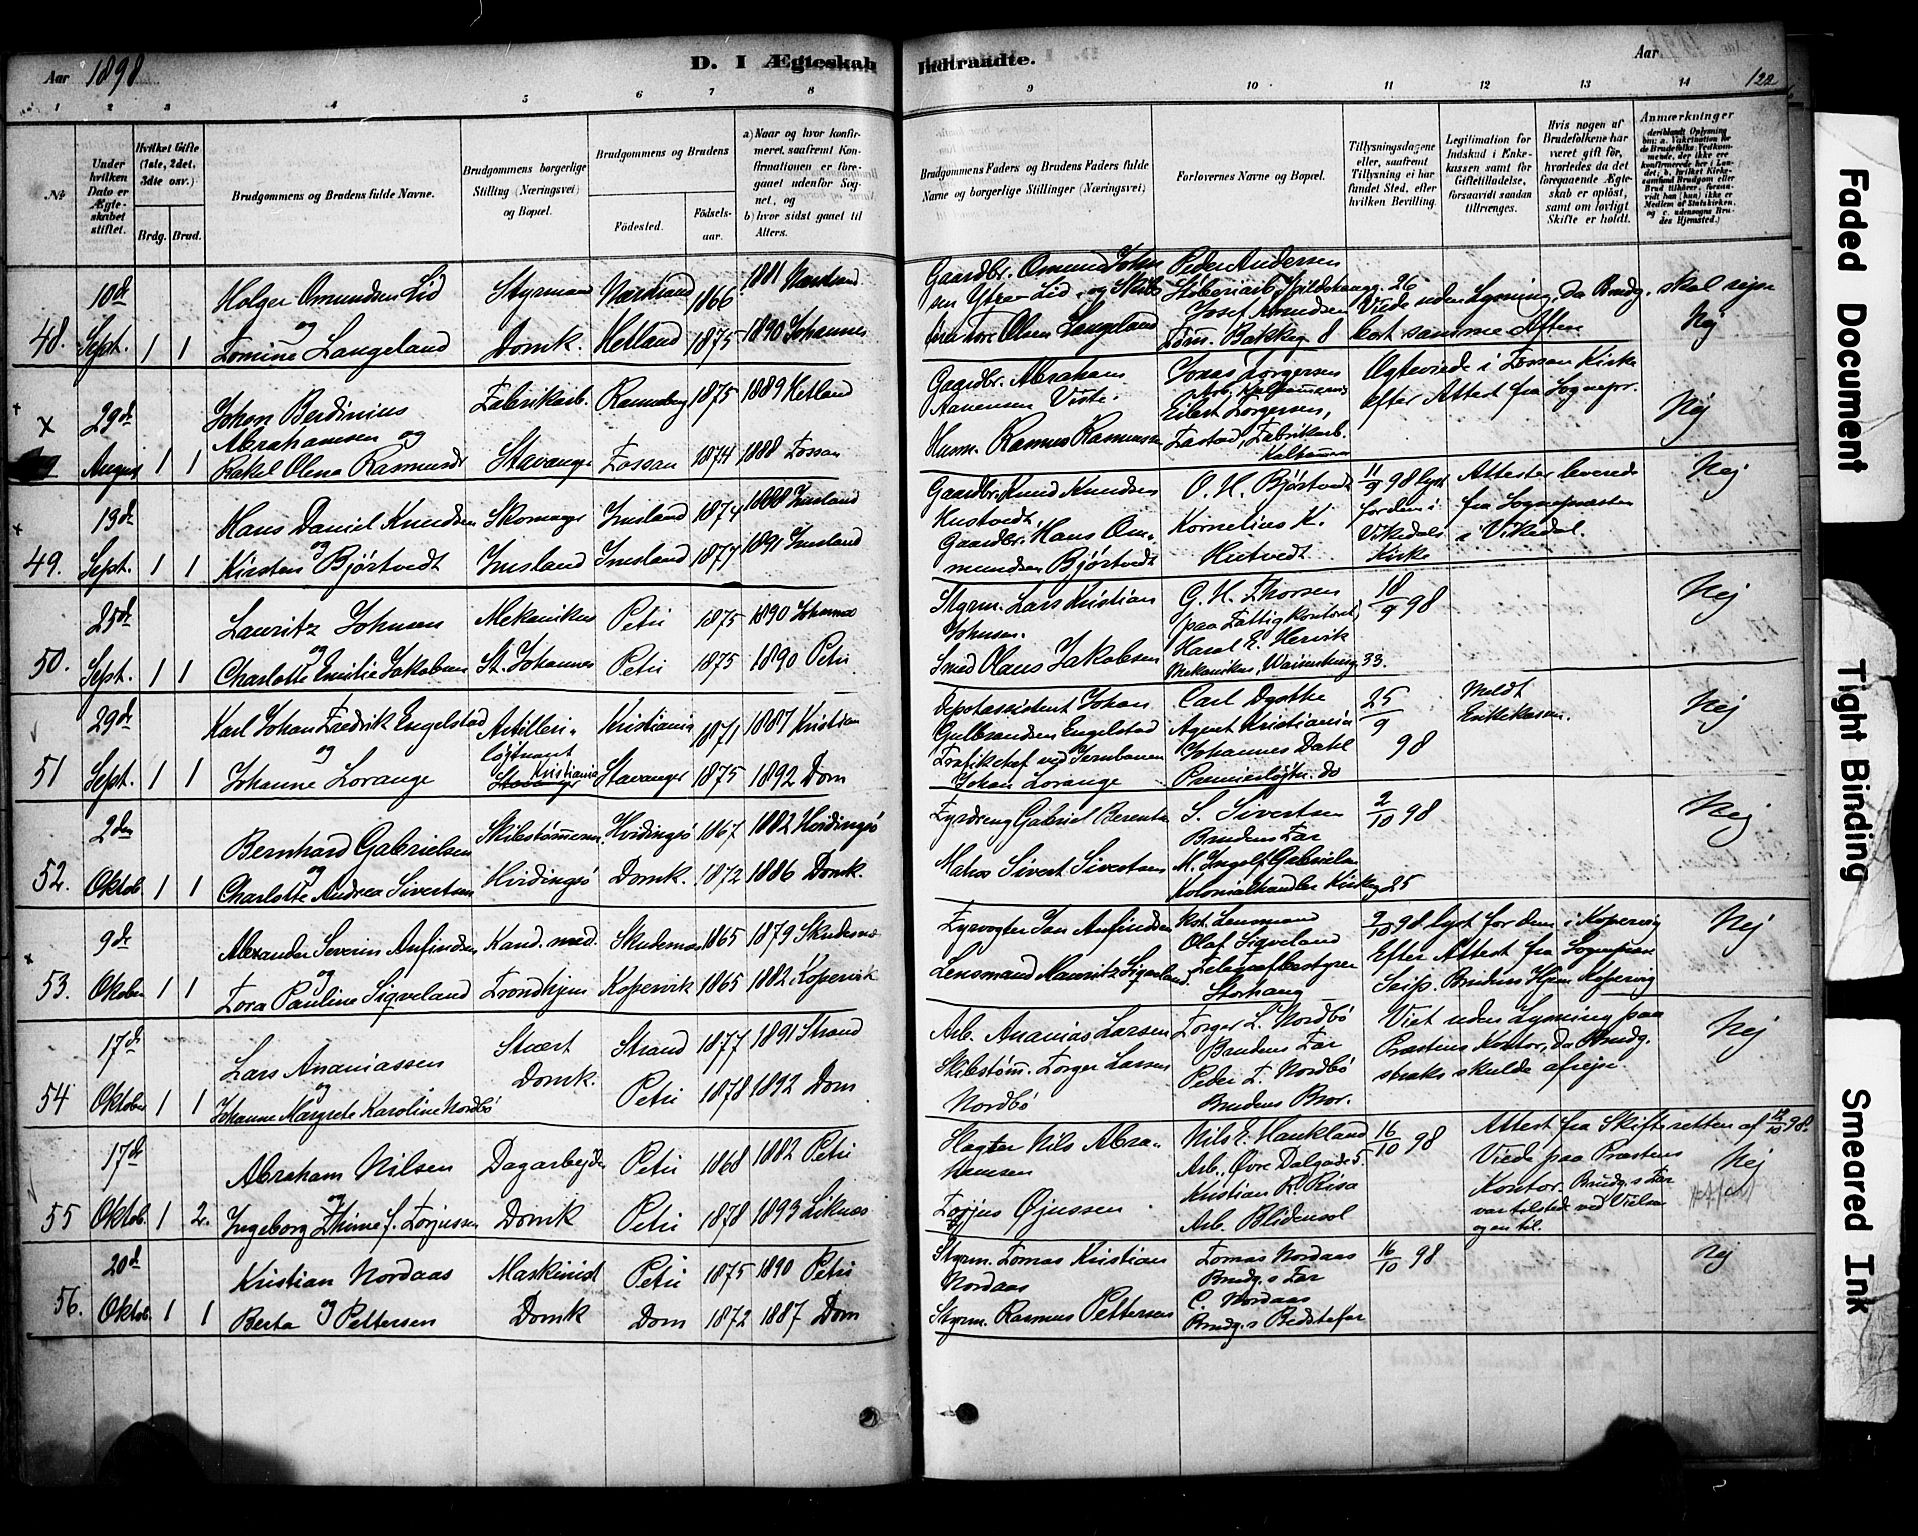 Aar 1898
D. I Ægteskab Indtraadte.
Aar
122
1 2 3 4 5 6 7 8 9 10 11 12 13 14
No
Under hvilken Dato er Ægteskabet stiftet.
Hvilket Gifte (1ste, 2det, 3die osv.)
Brdg. Brud.
Brudgommens og Brudens fulde Navne.
Brudgommens borgerlige Stilling (Næringsvei) og Bopæl.
Brudgommens og Brudens
Fødested.
Fødselsaar.
a) Naar og hvor konfirmeret, saafremt Konfirmationen er foregaaet udenfor Sognet, og
b) hvor sidst gaaet til Alters.
Brudgommens Faders og Brudens Faders fulde Navne og borgerlige Stillinger (Næringsvei)
Forlovernes Navne og Bopæl.
Tillysningsdagene eller, saafremt Tillysning ei har fundet Sted, efter hvilken Bevilling.
Legitimation for Indskud i Enkekassen samt for Giftetilladelse, forsaavidt saadan tiltrænges.
Hvis nogen af Brudefolkene har været gift før, hvorledes da det foregaaende Ægteskab er opløst, samt om lovligt Skifte er holdt.
Anmærkninger
48. 10de Sept. 1 1
Holger Omundsen Lid
og
Tomine Langeland
Styrmand
Domk.
Nærstrand
Hetland
1866
1875
1881 Nærstrand
1890 Johannes
Gaardbr. Omund Johnsen Ytre Lid, og
Tore Olsen Langeland
Peder Andersen
Josef Amundsen
Tøm. Bakkeg 8
Viede uden Lysning, da Brudg. skal rejse
bort samme Aften
Nej
29de August 1 1
Johan Berdinius
Abrahamsen og
Rakel Olena Rasmusdr
Fabrikarb.
Stavanger
Randaberg
Fossan
1875
1874
1889 Hetland
1888 Fossan
Gaardbr. Abraham
Aanensen Viste.
Husm. Rasmus Rasmussen
Jonas Torgersen
Eilert Torgersen,
Tastad, Fabrikarb.
Kalhammer
Ægteviede i Fossan Kirke
efter Attest fra Sognepr.
Nej
49. 13de Sept. 1 1
Hans Daniel Knudsen
og
Kirsten Bjørtvedt
Skomager
Imsland
Imsland
Imsland
1874
1877
1888 Imsland
1891 Imsland
Gaardbr. Knud Knudsen
Hustvedt,
Gaardbr. Hans Om-
mundsen Bjørtvedt
O. H. Bjørtvedt
Kornelius K.
Hustvedt
11/9 98 lyst
for dem i
Vikedals
Kirke
Attester leverede
fra Sognepræsten
i Vikedal.
Nej
50. 25de Sept. 1 1
Lauritz Johnsen
og
Charlotte Emilie Jakobsen
Mekanikus
St. Johannes
Petri
Petri
1875
1875
1890 Johannes
1890 Petri
Styrm. Lars Kristian
Johnsen.
Smed Olaus Jakobsen
G. H. Thorsen
paa Fattigkontoret,
Haral E. Hervik
Mekanikus, Waisenhusg 33.
18/9 98
Nej
51 29de Sept. 1 1
Karl Johan Fredrik Engelstad
og
Johanne Lorange
Artilleri-
løjtnant
Kristiania
Stavanger
Kristiania
Stavanger
1871
1875
1887 Kristian
1892 Dom
Johan
Gulbrandsen Engelstad
Trafikchef ved Jernbanen
Johan Lorange
Carl Dyøthe
Agent Kristiania
Johannes Dahl
Premierløjtn. do
25/9 98
Meldt
Enkekassen.
Nej
52. 2den Oktob. 1 1
Bernhard Gabrielsen
og
Charlotte Andrea Sivertsen
Skibstømmerm.
Hvidingsø
Hvidingsø
Domk.
1867
1872
1882 Hvidingsø
1886 Domk.
Fyrdreng Gabriel Berentsen
Matros Sivert Sivertsen
S. Sivertsen
Brudens Far
M. Ingolf Gabrielsen
Kolonialhandler Kirkeg 25
2/10 98
Nej
53. 9de Oktober 1 1
Alexander Severin Anfindsen
og
Tora Pauline Sigveland
Kand. med.
Trondhjem
Skudenæs
Kopervik
1865
1865
1879 Skudesnæs
1882 Kopervik
Fyrvogter Jan Anfindsen
Lensmand Mauritz Sigveland.
Kst. Lensmand
Olaf Sigveland
Telegrafbestyrer
Storhaug
9/10 98 lyst for dem i Kopervig
Efter Attest fra Sognepræst
Seip. Brudens Hjem Kopervig
Nej
54 17de Oktober 1 1
Lars Ananiassen
og
Johanne Margrete Karoline Nordbø
Stuert
Domk.
Strand
Petri
1877
1878
1891 Strand
1892 Dom
Arb. Ananias Larsen
Skibstøm. Torger Larsen
Nordbø
Torger L. Nordbø
Brudens Far
Peder T. Nordbø
Brudens Bror.
Viet uden Lysning paa
Præstens Kontor, da Brudg.
straks skulde afrejse.
Nej
55 17de Oktob. 1 2.
Abraham Nilsen
og
Ingeborg Thime f. Torjussen
Dagarbejder
Domk
Petri
Petri
1868
1878
1882 Petri
1893 Liknæs
Slagter Nils Abra-
hamsen
Torjus Øjussen
Nils E. Haukland
Arb., Øvre Dalgade 5.
Kristian R. Risa
Arb. Blidensol
16/10 98
Attest fra Skifteretten af 12/10 98.
Viede paa Præstens
Kontor. Brudg.s Far
var tilstede ved Vielsen
og en til.
Nej
56. 20de Oktob. 1 1
Kristian Nordaas
og
Berta Pettersen
Maskinist
Domk
Petri
Dom
1875
1872
1890 Petri
1887 Dom
Styrm. Tomas Kristian
Nordaas
Styrm. Rasmus Pettersen
Tomas Nordaas
Brudg.s Far
C. Nordaas
Brudg.s Bedstefar
16/10 98
Nej
Faded Document
Tight Binding
Smeared Ink